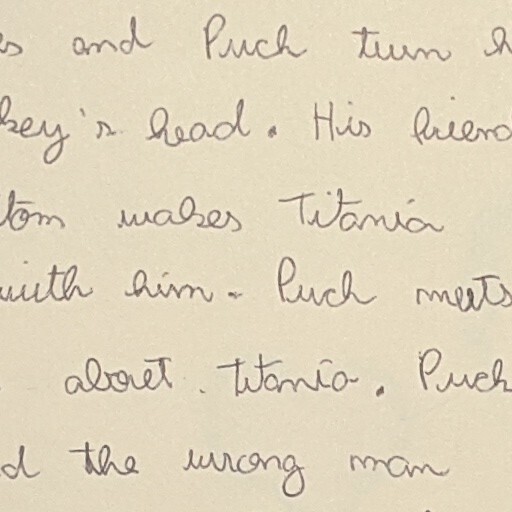 and Puck turn
key's head. His friend
tom wakes Titania
with him. Puck meets
about Titania. Puck
the wrong man